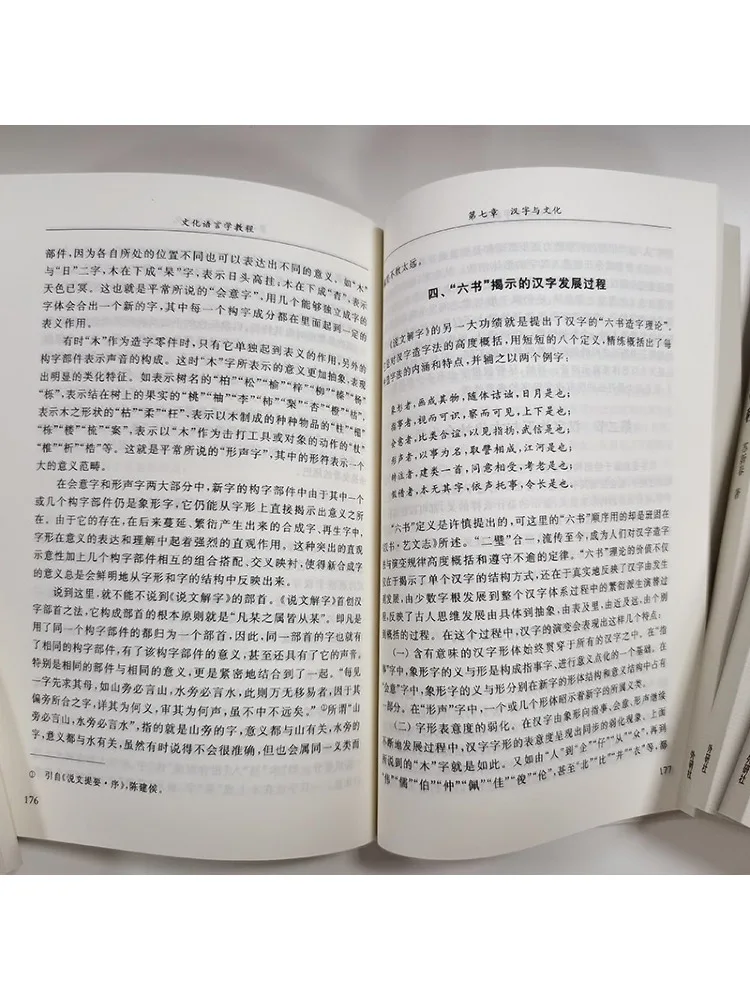 文化语言学教程
部件，因为各自所处的位置不同也可以表达出不同的意义。如“木”
与“日”二字，木在下成“杲”字，表示日头高挂；木在上成“杳”，表示
天色已冥。这也就是平常所说的“会意字”，用几个能够独立成字的
字体会合出一个新的字，其中每一个构字成分都在里面起到一定的
表义作用。
有时“木”作为造字零件时，只有它单独起到表义的作用，另外的
构字部件表示声音的构成。这时“木”字所表示的意义更加抽象，表现
出明显的类化特征。如表示树名的“柏”“松”“榆”“梓”“柳”“榛”“杨”
“栎”，表示结在树上的果实的“桃”“柚”“李”“柿”“梨”“杏”“橙”“桔”，
表示木之形状的“枯”“柔”“枉”，表示以木制成的种种物品的“柱”“楣”
“栋”“楼”“梳”“案”，表示以“木”作为击打工具或对象的动作的“杖”
“椎”“析”“梏”等。这就是平常所说的“形声字”，其中的形符表示一个
大的意义范畴。
在会意字和形声字两大部分中，新字的构字部件中由于其中一个
或几个构字部件仍是象形字，它仍能从字形上直接揭示出意义之所
在。由于它的存在，在后来蔓延、繁衍产生出来的合成字、再生字中，
字形在意义的表达和理解中起着强烈的直观作用。这种突出的直观
示意性加上几个构字部件相互的组合搭配、交叉映衬，使得新合成字
的意义总是会鲜明地从字形和字的结构中反映出来。
说到这里，就不能不说到《说文解字》的部首。《说文解字》首创汉
字部首之法，它构成部首的根本原则就是“凡某之属皆从某”。即凡是
用了同一个构字部件的都归为一个部首，因此，同一部首的字也就有
了相同的构字部件，有了该构字部件的意义，甚至还具有了它的声音。
特别是相同的部件与相同的意义，更是紧密地结合到了一起。“每见
一字先求其母，如山旁必言山，水旁必言水，此则万无移易者，因于其
偏旁所合之字，详其为何义，审其为何声，虽不中不远矣。”①所谓“山
旁必言山，水旁必言水”，指的就是山旁的字，意义都与山有关，水旁的
字，意义都与水有关，虽然有时说得不会很准确，但也会属同一义类而
① 引自《说文提要·序》，陈建侯。
176
第七章 汉字与文化
不致太远。
四、“六书”揭示的汉字发展过程
《说文解字》的另一大功绩就是提出了汉字的“六书造字理论”，
对汉字造字法的高度概括，用短短的八个定义，精练概括出了每
造字法的内涵和特点，并辅之以两个例字：
象形者，画成其物，随体诘诎，日月是也；
指事者，视而可识，察而见见，上下是也；
会意者，比类合谊，以见指㧑，武信是也；
形声者，以事为名，取譬相成，江河是也；
转注者，建类一首，同意相受，考老是也；
假借者，本无其字，依声托事，令长是也。
“六书”定义是许慎提出的，可这里的“六书”顺序用的却是班固在
《汉书·艺文志》所述。“二璧”合一，流传至今，成为人们对汉字造字法
与演变规律高度概括和遵守不逾的定律。“六书”理论的价值不仅
在于揭示了单个汉字的结构方式，还在于真实地反映了汉字由发生
到发展，由少数字根发展到整个汉字体系过程中的繁衍派生演接过
程，反映了古人思维发展由具体到抽象，由表及里，由近及远，由个别
到概括的过程。在这个过程中，汉字的演变会表现出这样几个特点：
（一）含有意味的汉字形体始终贯穿于所有的汉字之中。在“指
事”字中，象形字的义与形是构成指事字、进行意义点化的一个基础。在
“会意”字中，象形字的义与形分别在新字的形体结构和意义结构中占有
一部分。在“形声”字中，一个或几个形体昭示着新字的所属义类。
（二）字形表意度的弱化。在汉字由象形向指事、会意、形声继续
不断地发展过程中，汉字字形的表意度呈现出同步的弱化现象。上面
所说到的“木”字就是如此。又如由“人”到“企”“仔”“从”“众”，再到
“伟”“儒”“伯”“仲”“佩”“佳”“俊”“伦”，甚至“北”“化”“并”“衣”等，都
177
外研社
外研社
外研社